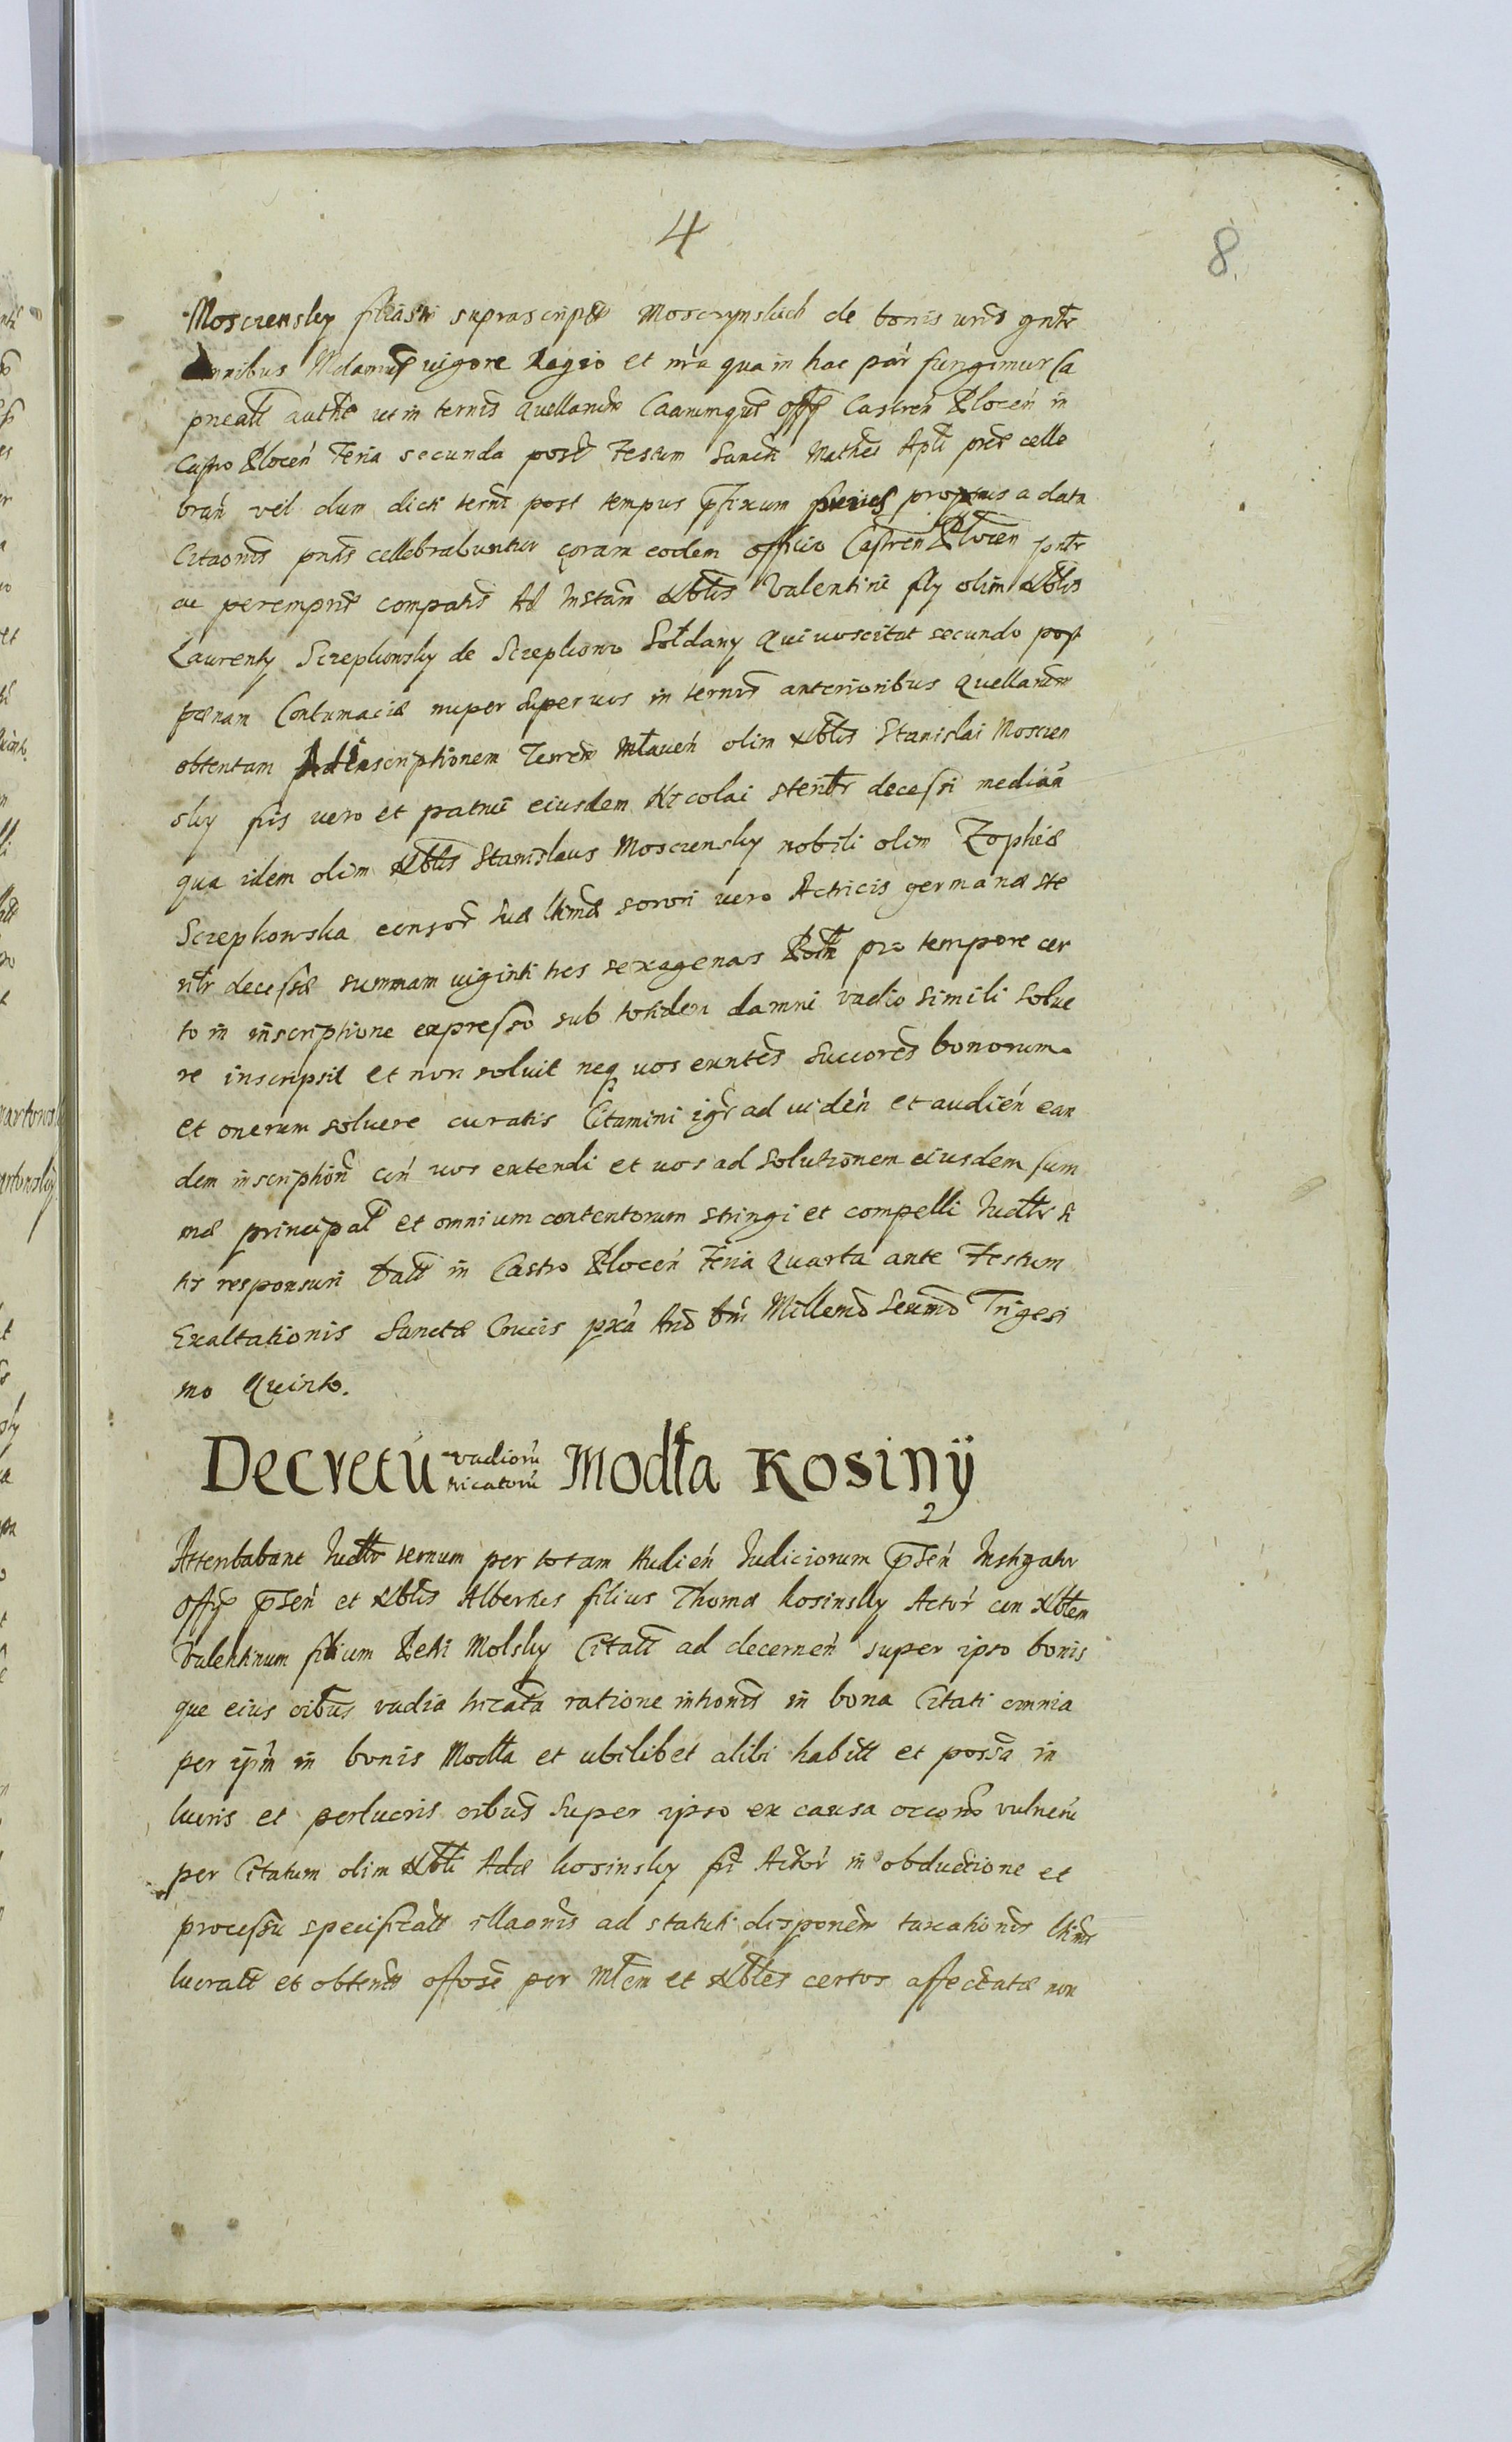 4
8
Mosczensky filiastri suprascripti Mosczynskich de bonis vris gnlr
omnibus Mdamus vigore Regio et nra qua in hac par fungimur Ca
pneali authe ut in ternis Querellarum Caarumque offy Castren Plocen in
Castro Plocen Feria secunda post Festum Sancti Mathei Apli pnt celle
bran vel dum dicti terni post tempus pfixum proprius a data
Citaonis pntis cellebrabuntur coram eodem officio Castren Plocen
ac peremprie compatis Ad Instam Nblis Valentini fly olim Nblis
Laurenty Sczepkowsky de Sczepkowo Soldany Qui vos citat secundo post
pænam Contumaciæ nuper super vos in ternis anterioribus Querellarum
obtentam Ad Inscriptionem Terrem Mlaven olim Nblis Stanislai Mosczen
sky fris vero et patrui eiusdem Nicolai steriltr decessi median
qua idem olim Nblis Stanislaus Mosczensky nobili olim Zophiæ
Sczepkowska consor suæ ltimæ sorori vero Actricis germanæ ste
riltr decessæ summam viginti tres sexagenas Poln pro tempore cer
to in inscriptione expresso sub totidem damni vadio simili solve
re inscripsit et non solvit neq vos exntes succores bonorum
et onerum solvere curatis Citamini igr ad viden et audien ean
dem inscription con vos extendi et vos ad solutionem eiusdem sum
mæ principal et omnium contentorum stringi et compelli Iudltr si
tis responsuri Datt in Castro Plocen Feria Quarta ante Festum
Exaltationis Sanctæ Crucis pxa Ano Dni Millemo Sexmo Trigesi
mo Quinto.
Decretu vadioru tricatoru Modła Kosiny
Attentabant Iudltr ternum per totam Audien Iudiciorum psen Instigator
Offy psen et Nblis Albertus filius Thomæ Kosinsky Actor con Nblem
Valentinum filium Petri Molsky Citatt ad decernen super ipso bonis
que eius oibus vadia tricata ratione intionis in bona Citati omnia
per ipm in bonis Modła et ubilibet alibi habitt et possa in
lucris et perlucris oibus super ipso ex causa occonis vulneru
per Citatum olim Nbli Adæ Kosinsky fri Actor in obductione et
processu specificatt illaonis ad statuti disponem taxationis ltimæ
lucratt et obtentt offose per Mlem et Nbles certos affectatæ non